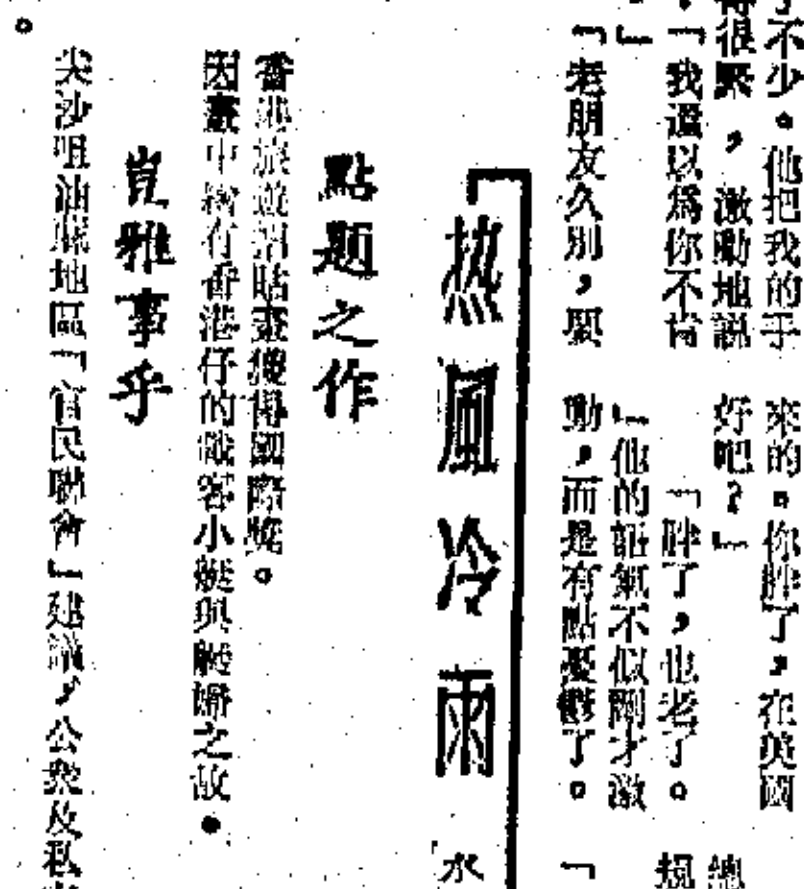 了不少。他把我的手
得很緊，激動地說
：「我還以爲你不肯
。」
「老朋友久別，要
來的。你胖了，在美國
好吧？」
「胖了，也老了。
」他的語氣不似剛才激
動，而是有點憂鬱了。
總
規
「
热風冷雨
水
點題之作
香港旅遊招貼畫獲得國際獎。
因畫中繪有香港仔的載客小艇與艇孀之故。
豈雅事乎
尖沙咀油蔴地區「官民聯會」建議，公衆及私
。